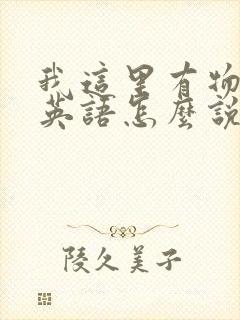 我這里有物
英語怎麼說
陵久美子